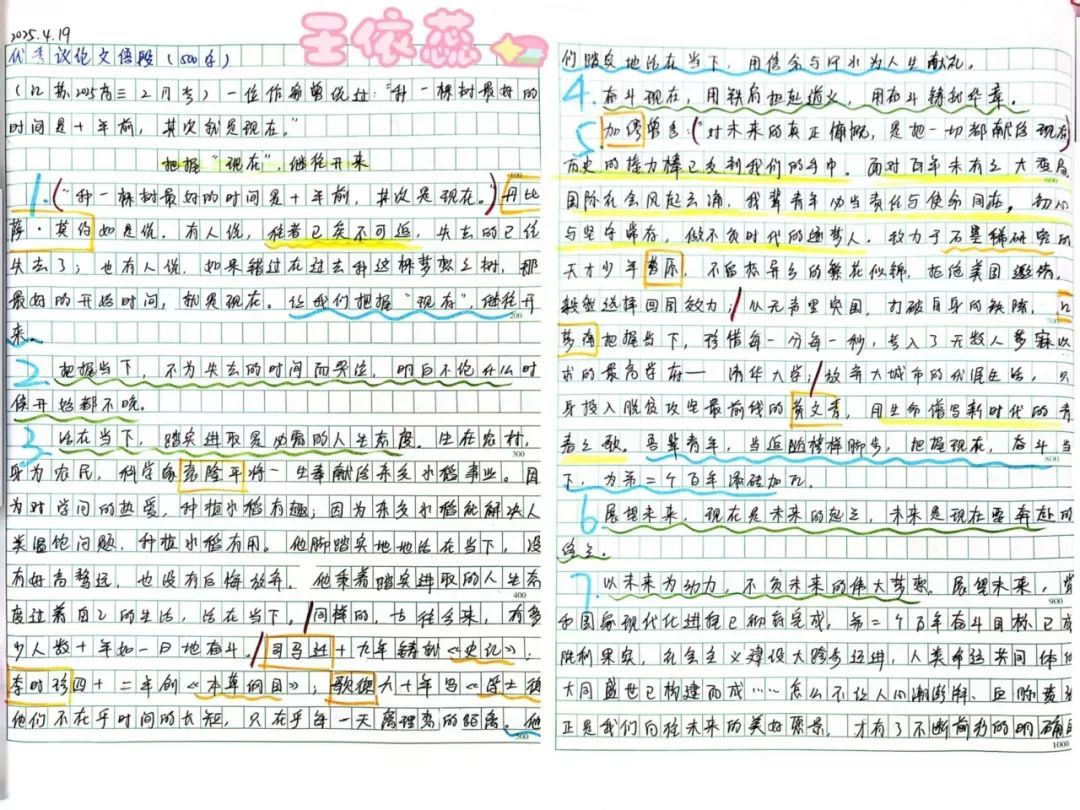 2025.4.19
王依蕊
优秀议论文语段(500字)
(江苏2025高三2月考)一位作家曾说过:"种一棵树最好的
时间是十年前,其次就是现在。"
把握"现在",继往开来
1.("种一棵树最好的时间是十年前,其次是现在。")丹比
萨·莫约如是说。有人说,往者已矣不可追,失去的已经
失去了;也有人说,如果错过在过去种这棵梦想之树,那
最好的开始时间,就是现在。让我们把握"现在",继往开
来。
2.把握当下,不为失去的时间而哭泣,明白不论什么时
候开始都不晚。
3.活在当下,踏实进取是必需的人生态度。生在农村,
身为农民,科学家袁隆平将一生奉献给杂交水稻事业。因
为对学问的热爱,种植水稻有趣;因为杂交水稻能解决人
类温饱问题,种植水稻有用。他脚踏实地地活在当下,没
有好高骛远,也没有后悔放弃。他秉着踏实进取的人生态
度过着自己的生活,活在当下。/同样的,古往今来,有多
少人数十年如一日地奋斗。/司马迁十九年铸就《史记》;
李时珍四十二年创《本草纲目》;歌德六十年写《浮士德
他们不在乎时间的长短,只在乎每一天离理想的距离。他
们踏实地活在当下,用信念与汗水为人生献礼。
4.奋斗现在,用铁肩担起道义,用奋斗铸就华章。
5.加缪曾言:("对未来的真正慷慨,是把一切都献给现在)
历史的接力棒已交到我们的手中。面对百年未有之大变局
国际社会风起云涌,我辈青年必当责任与使命同在,初心
与坚守常存,做不负时代的逐梦人。致力于石墨稀研究的
天才少年曹原,不留恋异乡的繁花似锦,拒绝美国邀请,
毅然选择回国效力;/从无声里突围,力破自身的缺陷,江
梦南把握当下,珍惜每一分每一秒,考入了无数人梦寐以
求的最高学府——清华大学;/放弃大城市的优渥生活,只
身投入脱贫攻坚最前线的黄文秀,用生命谱写新时代的青
春之歌。吾辈青年,当追随榜样脚步,把握现在,奋斗当
下,为第二个百年添砖加瓦。
6.展望未来,现在是未来的起点,未来是现在要奔赴的
终点。
7.以未来为动力,不负未来的伟大梦想。展望未来,当
和国家现代化进程已彻底完成,第二个百年奋斗目标已成
胜利果实,社会主义建设大跨步迈进,人类命运共同体的
大同盛世已构建而成……怎么不让人心潮澎湃、血脉贲张
正是我们向往未来的美好愿景,才有了不断前行的明确目